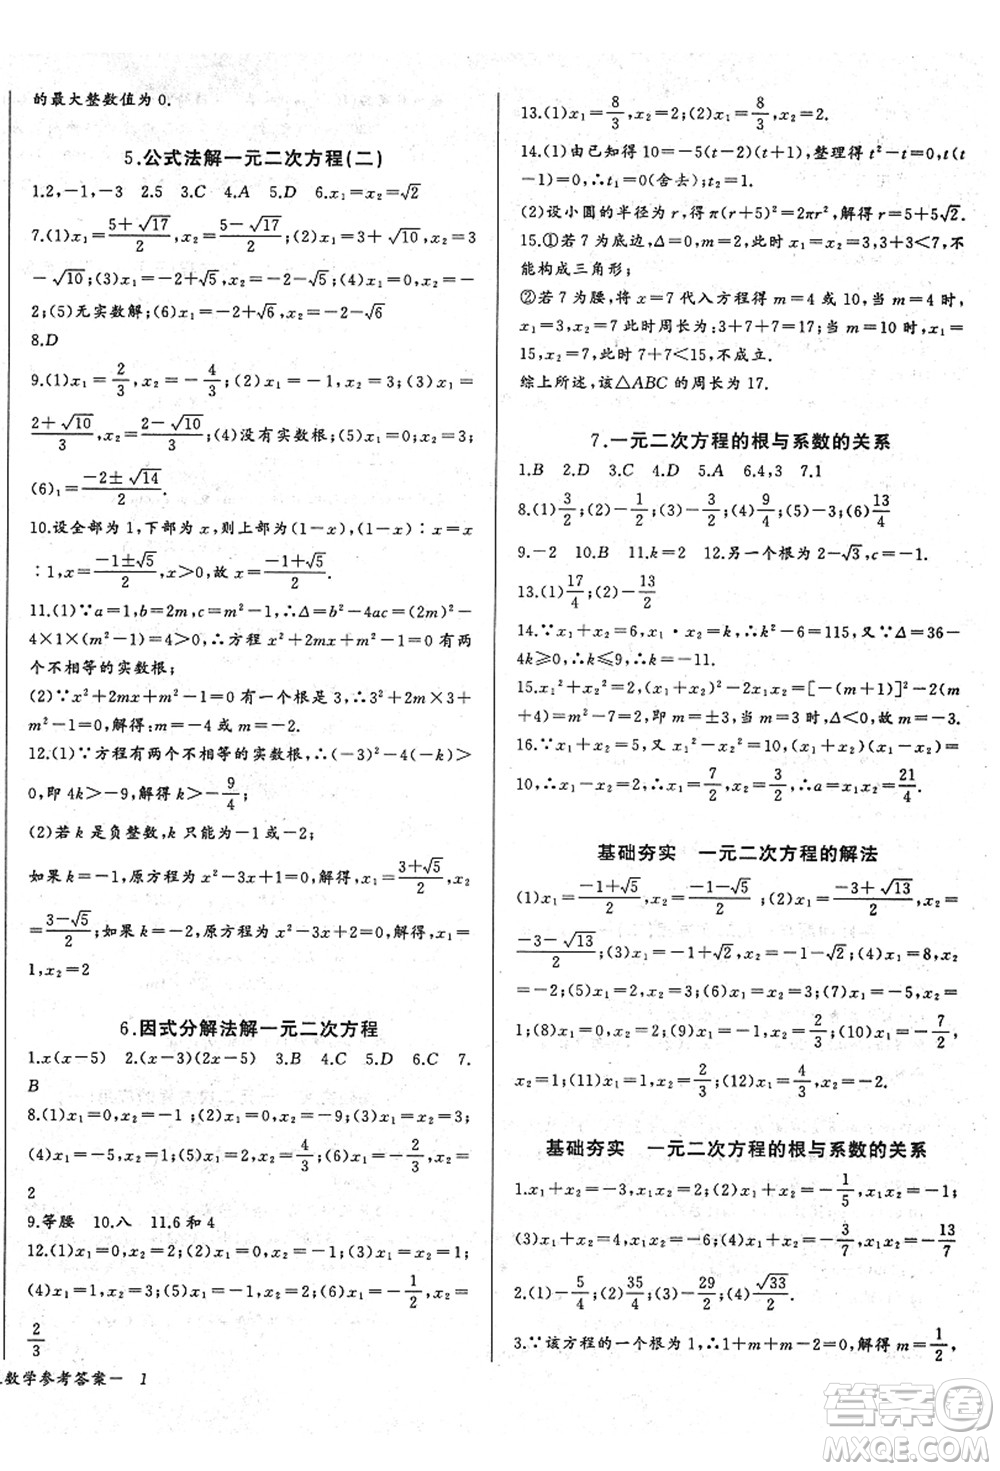 的最大整数值为 0.
5.公式法解一元二次方程(二)
1.2,-1,-3  2.5  3.C  4.A  5.D  6.x₁=x₂=√2
7.(1)x₁=(5+√17)/2,x₂=(5-√17)/2;(2)x₁=3+√10,x₂=3
-√10;(3)x₁=-2+√5,x₂=-2-√5;(4)x₁=1,x₂=
2;(5)无实数解;(6)x₁=2+√6,x₂=2-√6
8.D
9.(1)x₁=2/3,x₂=-4/3;(2)x₁=-1,x₂=3;(3)x₁=
(2+√10)/3,x₂=(2-√10)/3;(4)没有实数根;(5)x₁=0,x₂=3;
(6)₁=(-2±√14)/2.
10.设全部为 1,下部为 x,则上部为(1-x),(1-x)∶x=x
∶1,x=(-1±√5)/2,x>0,故 x=(-1+√5)/2.
11.(1)∵a=1,b=2m,c=m²-1,∴Δ=b²-4ac=(2m)²-
4×1×(m²-1)=4>0,∴方程 x²+2mx+m²-1=0 有两
个不相等的实数根;
(2)∵x²+2mx+m²-1=0 有一个根是 3,∴3²+2m×3+
m²-1=0,解得:m=-4 或 m=-2.
12.(1)∵方程有两个不相等的实数根,∴(-3)²-4(-k)>
0,即 4k>-9,解得 k>-9/4;
(2)若 k 是负整数,k 只能为-1 或-2;
如果 k=-1,原方程为 x²-3x+1=0,解得,x₁=(3+√5)/2,x₂
=(3-√5)/2;如果 k=-2,原方程为 x²-3x+2=0,解得,x₁=
1,x₂=2
6.因式分解法解一元二次方程
1.x(x-5)  2.(x-3)(2x-5)  3.B  4.C  5.D  6.C  7.
B
8.(1)x₁=0,x₂=-1;(2)x₁=0,x₂=-9;(3)x₁=x₂=3;
(4)x₁=-5,x₂=1;(5)x₁=4/3,x₂=-2/3;(6)x₁=1/2,x₂=
2
9.等腰  10.八  11.6 和 4
12.(1)x₁=0,x₂=2;(2)x₁=0,x₂=-1;(3)x₁=x₂=1;
(4)x₁=-1,x₂=3;(5)x₁=3,x₂=-6;(6)x₁=-1/2,x₂=
2/3
.数学参考答案— 1
13.(1)x₁=8/3,x₂=4;(2)x₁=8/3,x₂=2.
14.(1)由已知得 10=-5(t-2)(t+1),整理得 t²-t=0,t(t
-1)=0,∴t₁=0(舍去);t₂=1.
(2)设小圆的半径为 r,得 π(r+5)²=2πr²,解得 r=5+5√2.
15.①若 7 为底边,Δ=0,m=2,此时 x₁=x₂=3,3+3<7,不
能构成三角形;
②若 7 为腰,将 x=7 代入方程得 m=4 或 10,当 m=4 时,
x₁=3,x₂=7,此时周长为:3+7+7=17;当 m=10 时,x₁=
15,x₂=7,此时 7+7<15,不成立.
综上所述,该△ABC 的周长为 17.
7.一元二次方程的根与系数的关系
1.B  2.D  3.C  4.D  5.A  6.4,3  7.1
8.(1)3/2;(2)-1/2;(3)-3/2;(4)9/4;(5)-3;(6)13/4
9.-2  10.B  11.k=2  12.另一个根为 2-√3,c=-1.
13.(1)17/4;(2)-13/2
14.∵x₁+x₂=6,x₁·x₂=k,∴k²-6=115,又∵Δ=36-
4k≥0,∴k≤9,∴k=-11.
15.x₁²+x₂²=(x₁+x₂)²-2x₁x₂=[-(m+1)]²-2(m
+4)=m²-7=2,即 m=±3,当 m=3 时,Δ<0,故 m=-3.
16.∵x₁+x₂=5,又 x₁²-x₂²=10,∴(x₁+x₂)(x₁-x₂)=
10,∴x₁-x₂=2,∴x₁=7/2,x₂=3/2,∴a=x₁x₂=21/4.
基础夯实  一元二次方程的解法
(1)x₁=(-1+√5)/2,x₂=(-1-√5)/2;(2)x₁=(-3+√13)/2,x₂=
(-3-√13)/2;(3)x₁=-1+√2,x₂=-1-√2;(4)x₁=8,x₂
=-2;(5)x₁=0,x₂=2;(6)x₁=2,x₂=3;(7)x₁=-9,x₂=
1;(8)x₁=-2,x₂=4;(9)x₁=3,x₂=-2;(10)x₁=-7/2,
x₂=1;(11)x₁=2/3,x₂=4/3;(12)x₁=1,x₂=-2.
基础夯实  一元二次方程的根与系数的关系
1.x₁+x₂=-3,x₁x₂=1;(2)x₁+x₂=-1/5,x₁x₂=-1;
(3)x₁+x₂=4,x₁x₂=-6;(4)x₁+x₂=-3/7,x₁x₂=-13/7
2.(1)-5/4;(2)35/4;(3)-29/2;(4)√33/2.
3.∵该方程的一个根为 1,∴1+m+m-2=0,解得 m=1/2,
答案卷
MXQE.COM